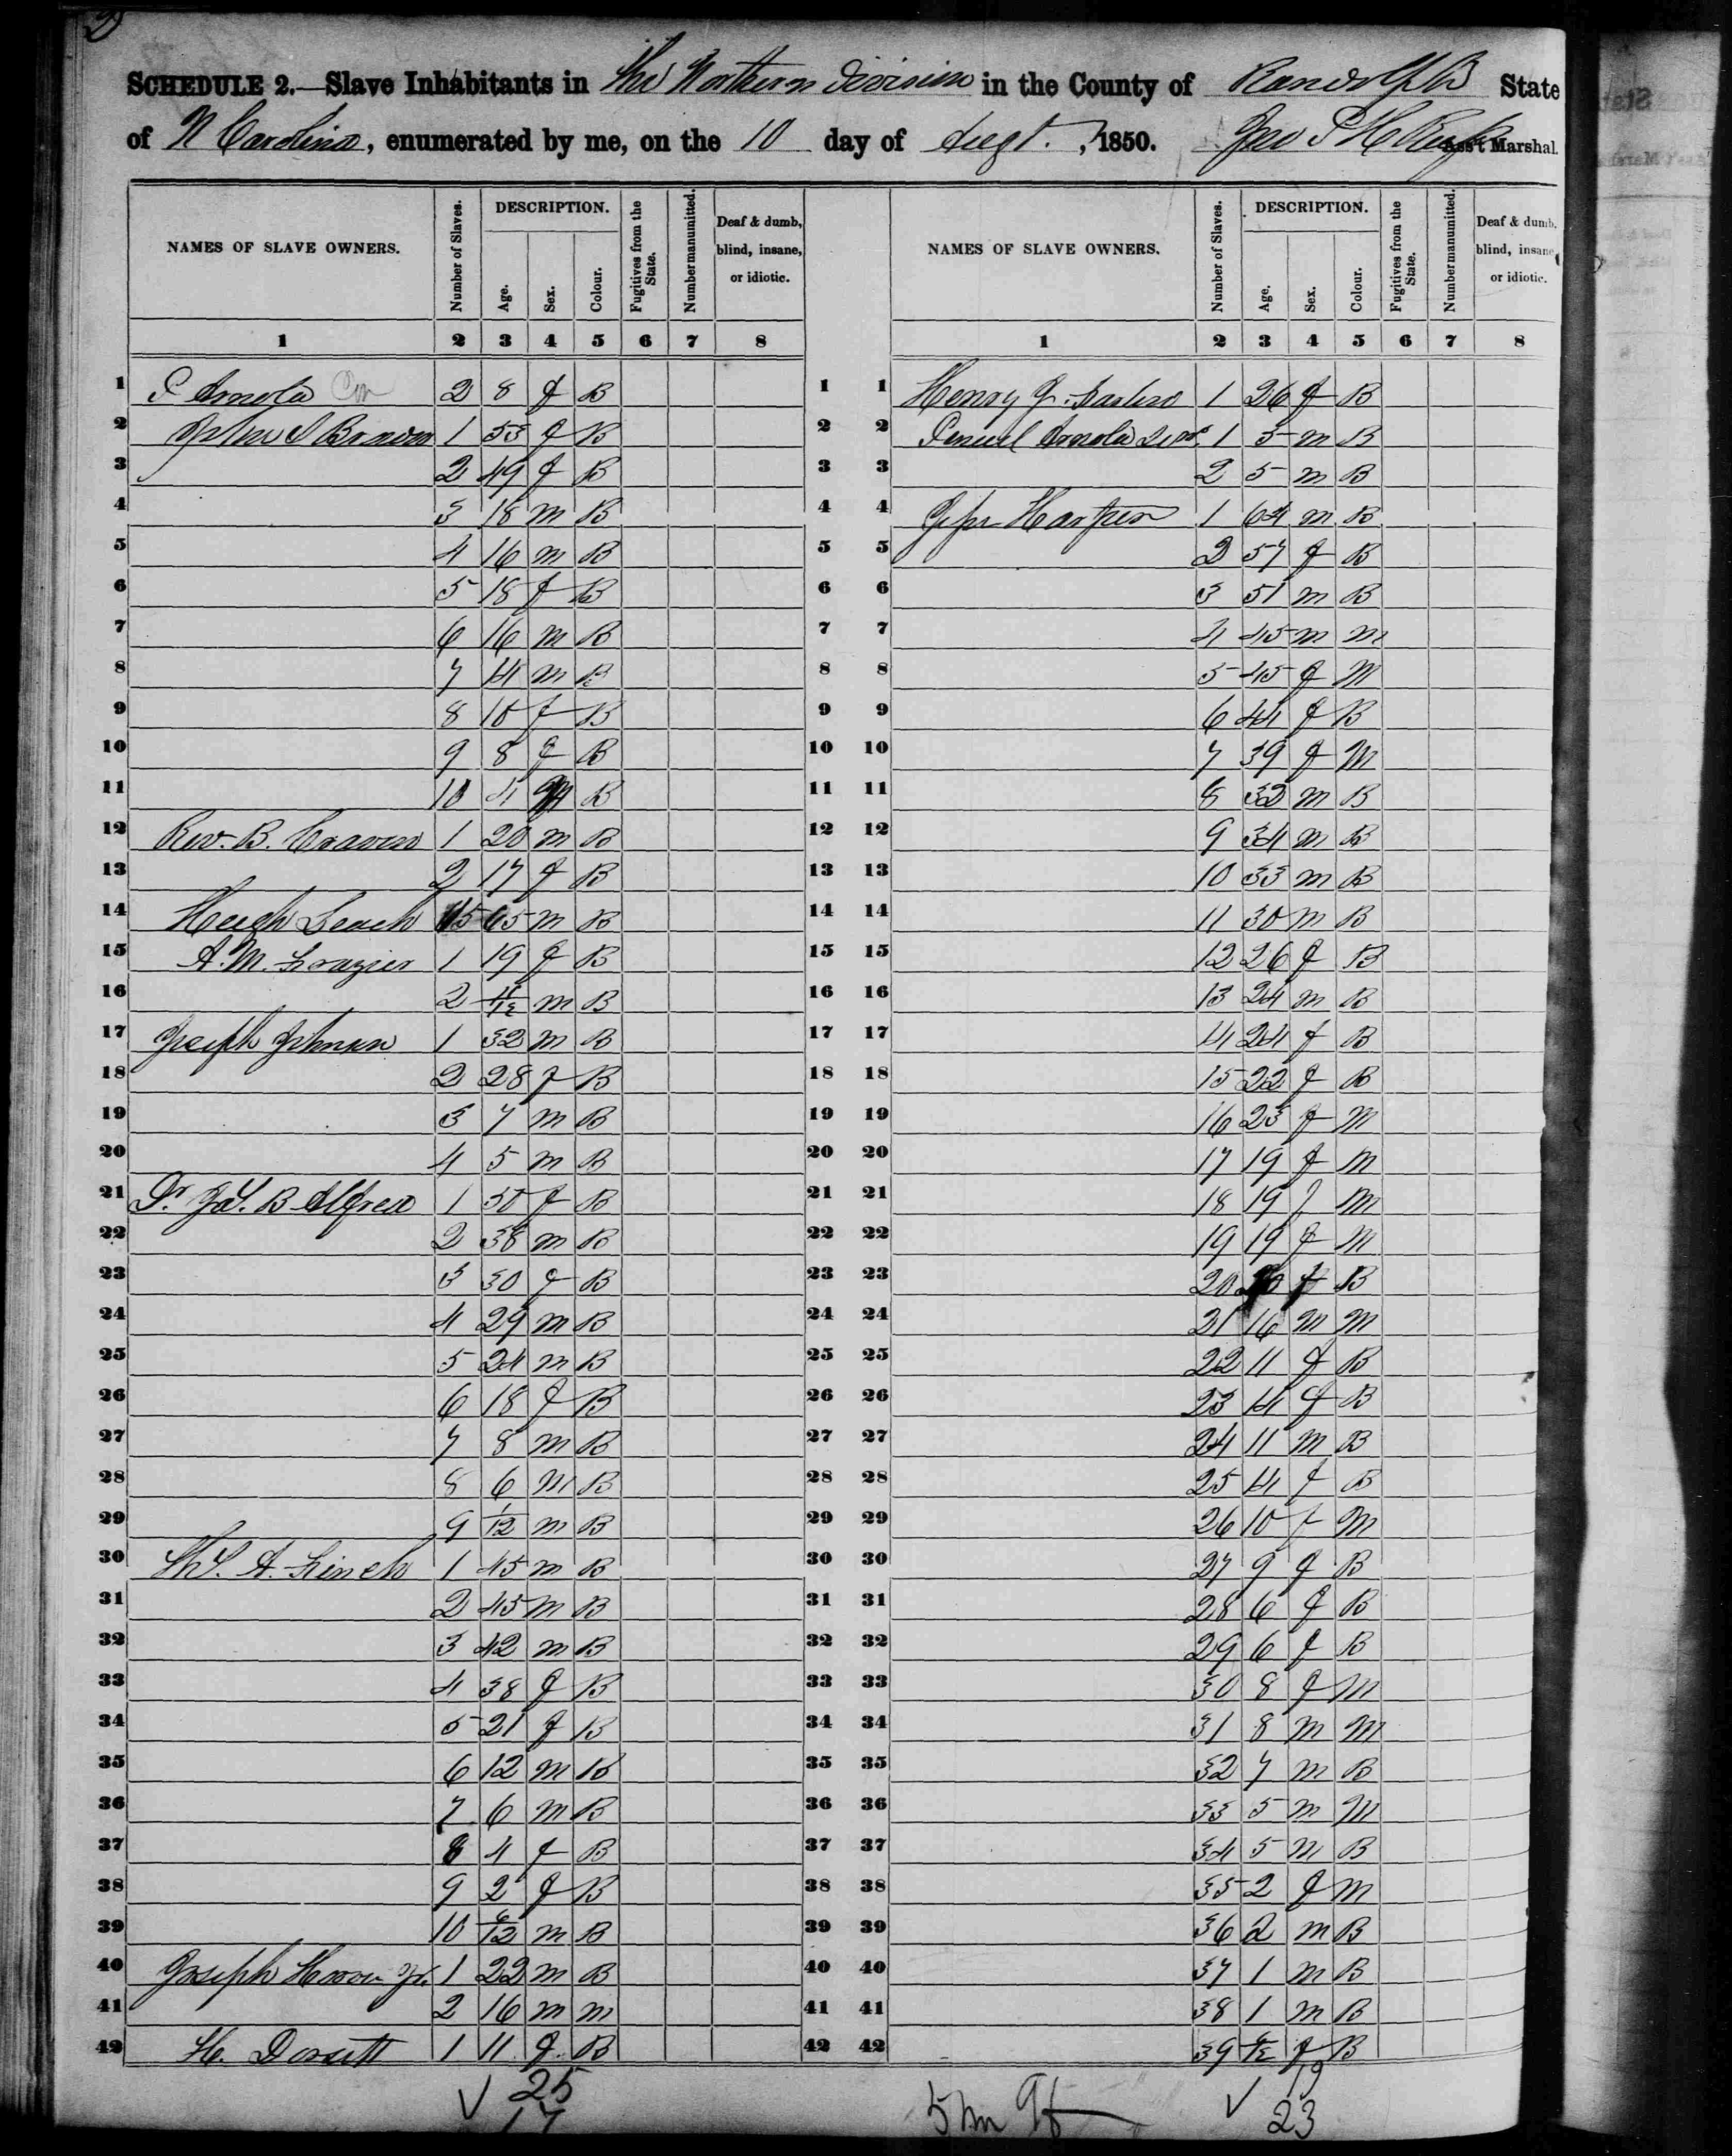 SCHEDULE 2.—Slave Inhabitants in the Northern Division in the County of Randolph State
of N Carolina, enumerated by me, on the 10 day of Augt., 1850. Ass't Marshal.
NAMES OF SLAVE OWNERS. Number of Slaves. DESCRIPTION. Age. Sex. Colour. Fugitives from the State. Number manumitted. Deaf & dumb, blind, insane, or idiotic.
1 2 3 4 5 6 7 8
1 P Arnold 2 8 f B
2 John S Brown 1 53 f B
3 2 49 f B
4 3 18 m B
5 4 16 m B
6 5 18 f B
7 6 16 m B
8 7 14 m B
9 8 10 f B
10 9 8 f B
11 10 4 B
12 Rev. B. Craven 1 20 m B
13 2 17 f B
14 Hugh Leach 65 m B
15 A. M. Frazier 1 19 f B
16 2 m B
17 Joseph Johnson 1 32 m B
18 2 28 f B
19 3 7 m B
20 4 5 m B
21 Dr. B Alfred 1 50 f B
22 2 38 m B
23 3 30 f B
24 4 29 m B
25 5 24 m B
26 6 18 f B
27 7 8 m B
28 8 6 m B
29 9 1/12 m B
30 A. Finch 1 45 m B
31 2 45 m B
32 3 42 m B
33 4 38 f B
34 5 21 f B
35 6 12 m B
36 7 6 m B
37 8 4 f B
38 9 2 f B
39 10 6/12 m B
40 Joseph Hoover Jr. 1 22 m B
41 2 16 m m
42 H. Dorsett 1 11 f B
25
17
NAMES OF SLAVE OWNERS. Number of Slaves. DESCRIPTION. Age. Sex. Colour. Fugitives from the State. Number manumitted. Deaf & dumb, blind, insane, or idiotic.
1 2 3 4 5 6 7 8
1 1 Henry 1 26 f B
2 2 Penuel Arnold 1 5 m B
3 3 2 5 m B
4 4 Harper 1 64 m B
5 5 2 57 f B
6 6 3 51 m B
7 7 4 45 m m
8 8 5 45 f M
9 9 6 44 f B
10 10 7 39 f M
11 11 8 32 m B
12 12 9 34 m B
13 13 10 33 m B
14 14 11 30 m B
15 15 12 26 f B
16 16 13 24 m B
17 17 14 24 f B
18 18 15 22 f B
19 19 16 23 f M
20 20 17 19 f m
21 21 18 19 f m
22 22 19 19 f M
23 23 20 f B
24 24 21 16 m M
25 25 22 11 f B
26 26 23 14 f B
27 27 24 11 m B
28 28 25 14 f B
29 29 26 10 f M
30 30 27 9 f B
31 31 28 6 f B
32 32 29 6 f B
33 33 30 8 f M
34 34 31 8 m M
35 35 32 7 m B
36 36 33 5 m M
37 37 34 5 m B
38 38 35 2 f m
39 39 36 2 m B
40 40 37 1 m B
41 41 38 1 m B
42 42 39 f B
5m 9f
19
23